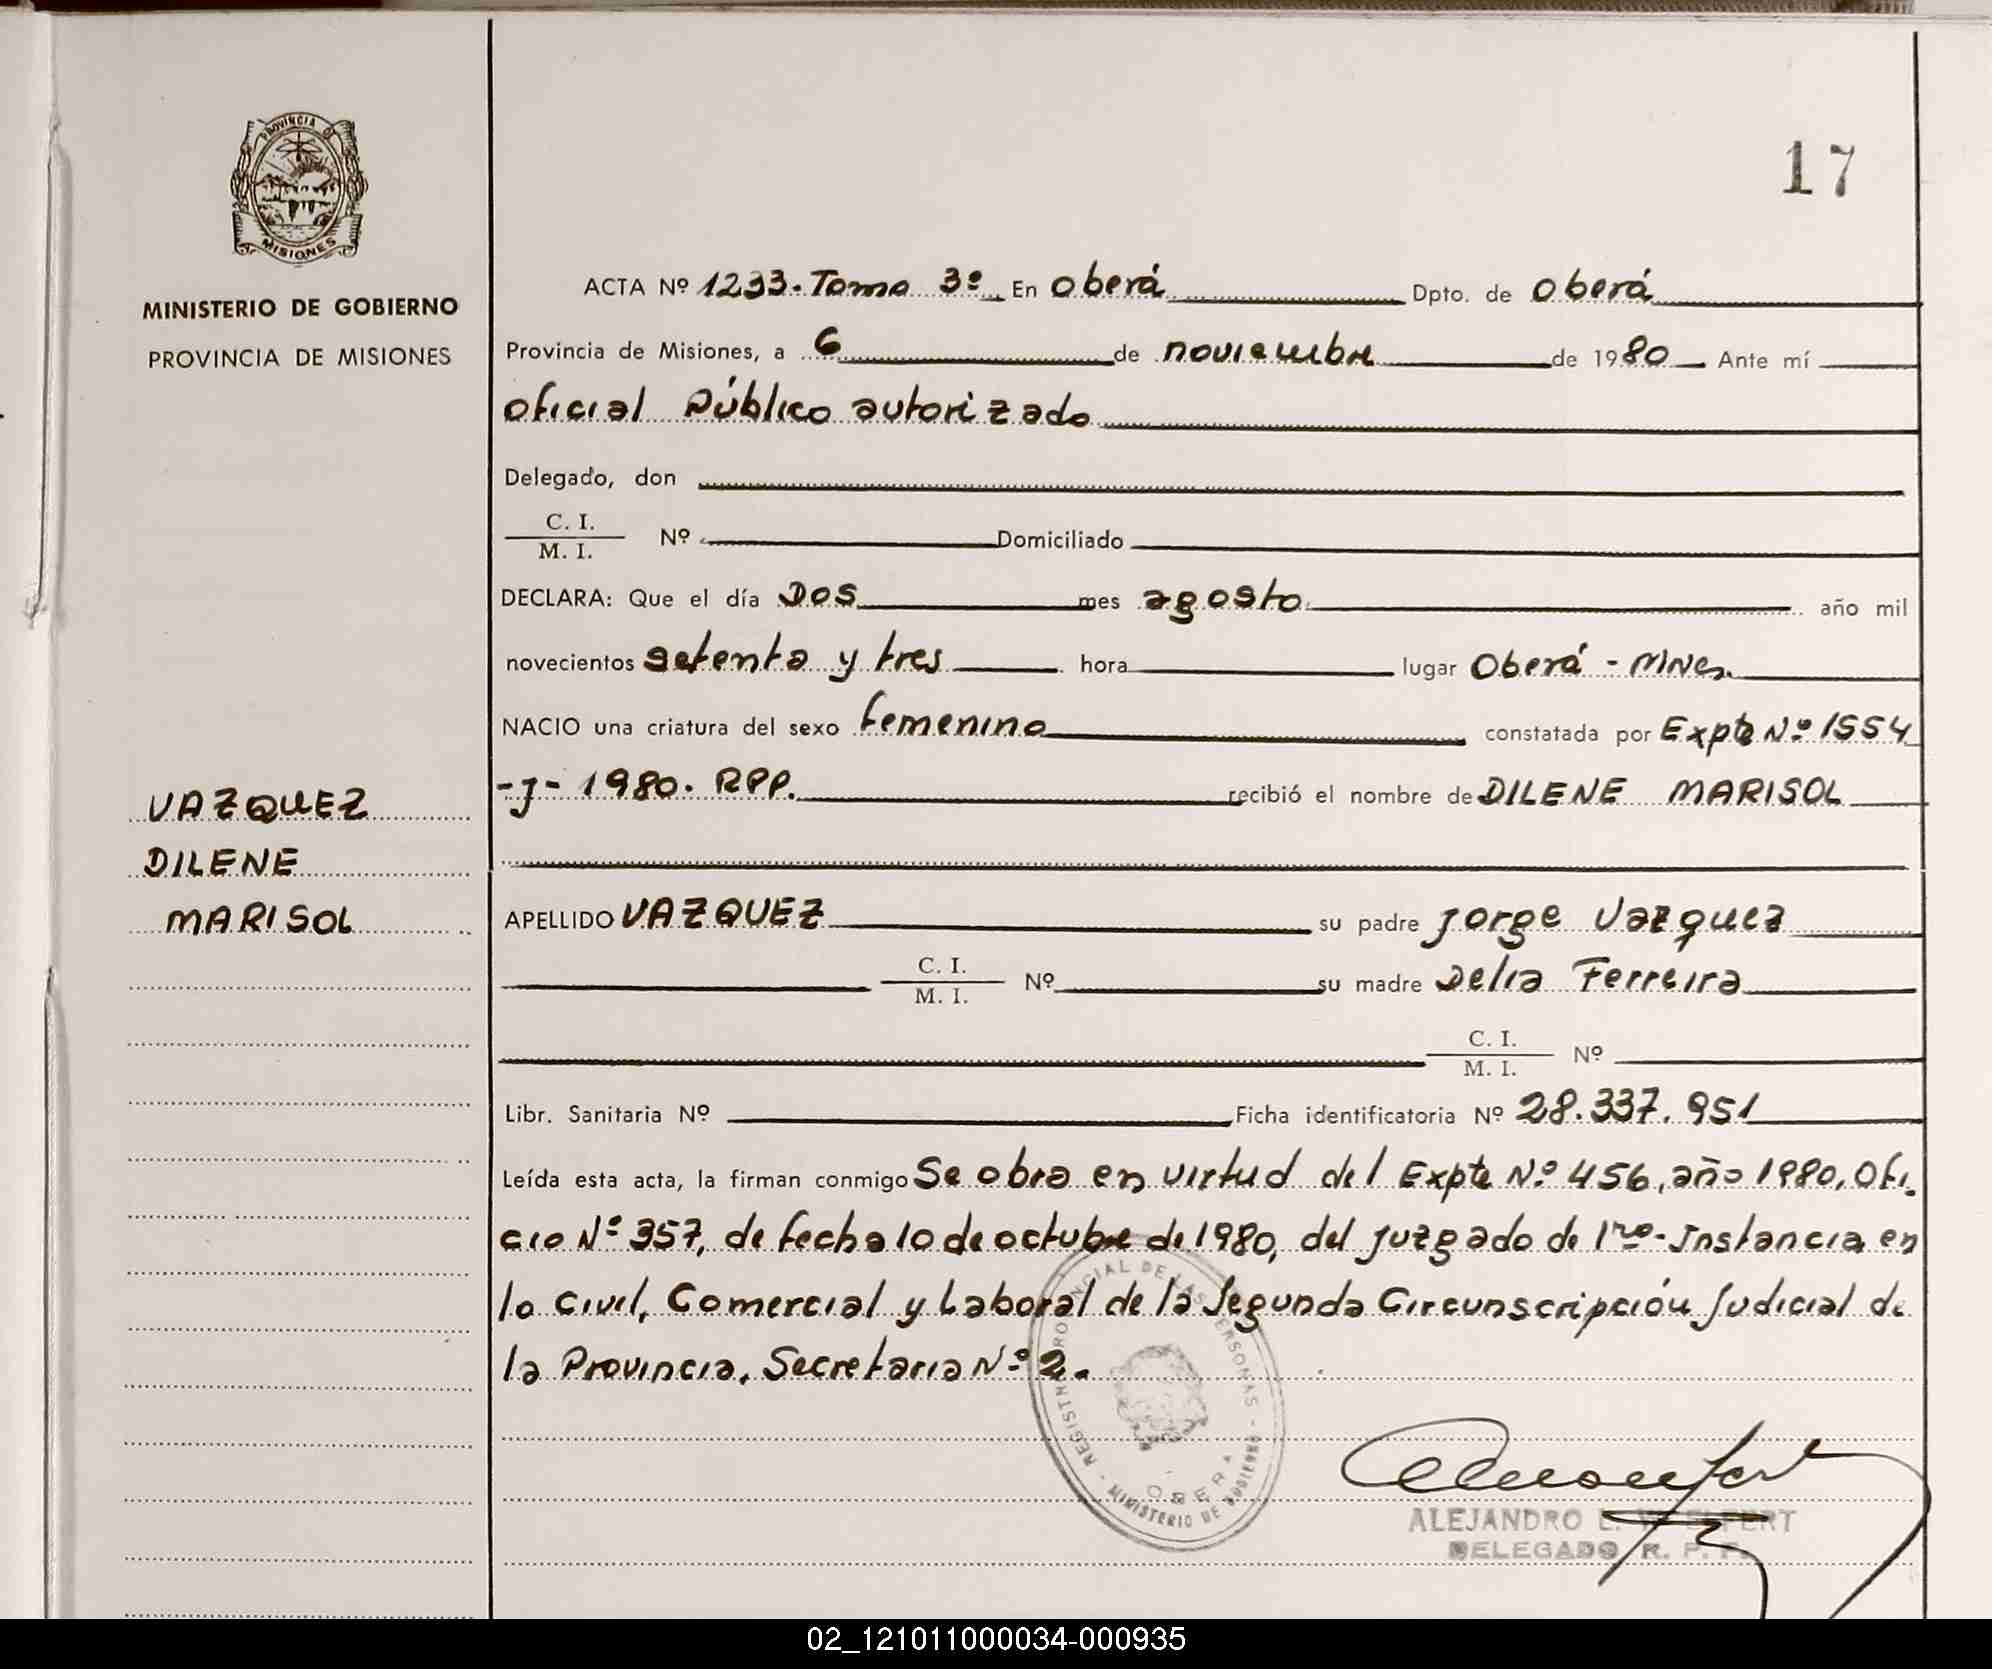 17
PROVINCIA DE
MISIONES
MINISTERIO DE GOBIERNO
PROVINCIA DE MISIONES
ACTA Nº 1233. Tomo 3º En Oberá Dpto. de Oberá
Provincia de Misiones, a 6 de noviembre de 1980 Ante mí
oficial Público autorizado
Delegado, don
C. I.
M. I. Nº Domiciliado
DECLARA: Que el día DOS mes agosto año mil
novecientos setenta y tres hora lugar Oberá - MNes.
NACIO una criatura del sexo femenino constatada por Expte Nº 1554
-J- 1980. RPP. recibió el nombre de DILENE MARISOL
VAZQUEZ
DILENE
MARISOL
APELLIDO VAZQUEZ su padre Jorge Vazquez
C. I.
M. I. Nº su madre Delia Ferreira
C. I.
M. I. Nº
Libr. Sanitaria Nº Ficha identificatoria Nº 28.337.951
Leída esta acta, la firman conmigo Se obra en virtud del Expte Nº 456, año 1980, Ofi.
cio Nº 357, de fecha 10 de octubre de 1980, del juzgado de 1ra. Instancia en
lo Civil, Comercial y Laboral de la Segunda Circunscripción Judicial de
la Provincia, Secretaria Nº 2.
REGISTRO PROVINCIAL DE LAS PERSONAS
OBERA
MINISTERIO DE GOBIERNO
ALEJANDRO L.
DELEGADO R. P. P.
02_121011000034-000935